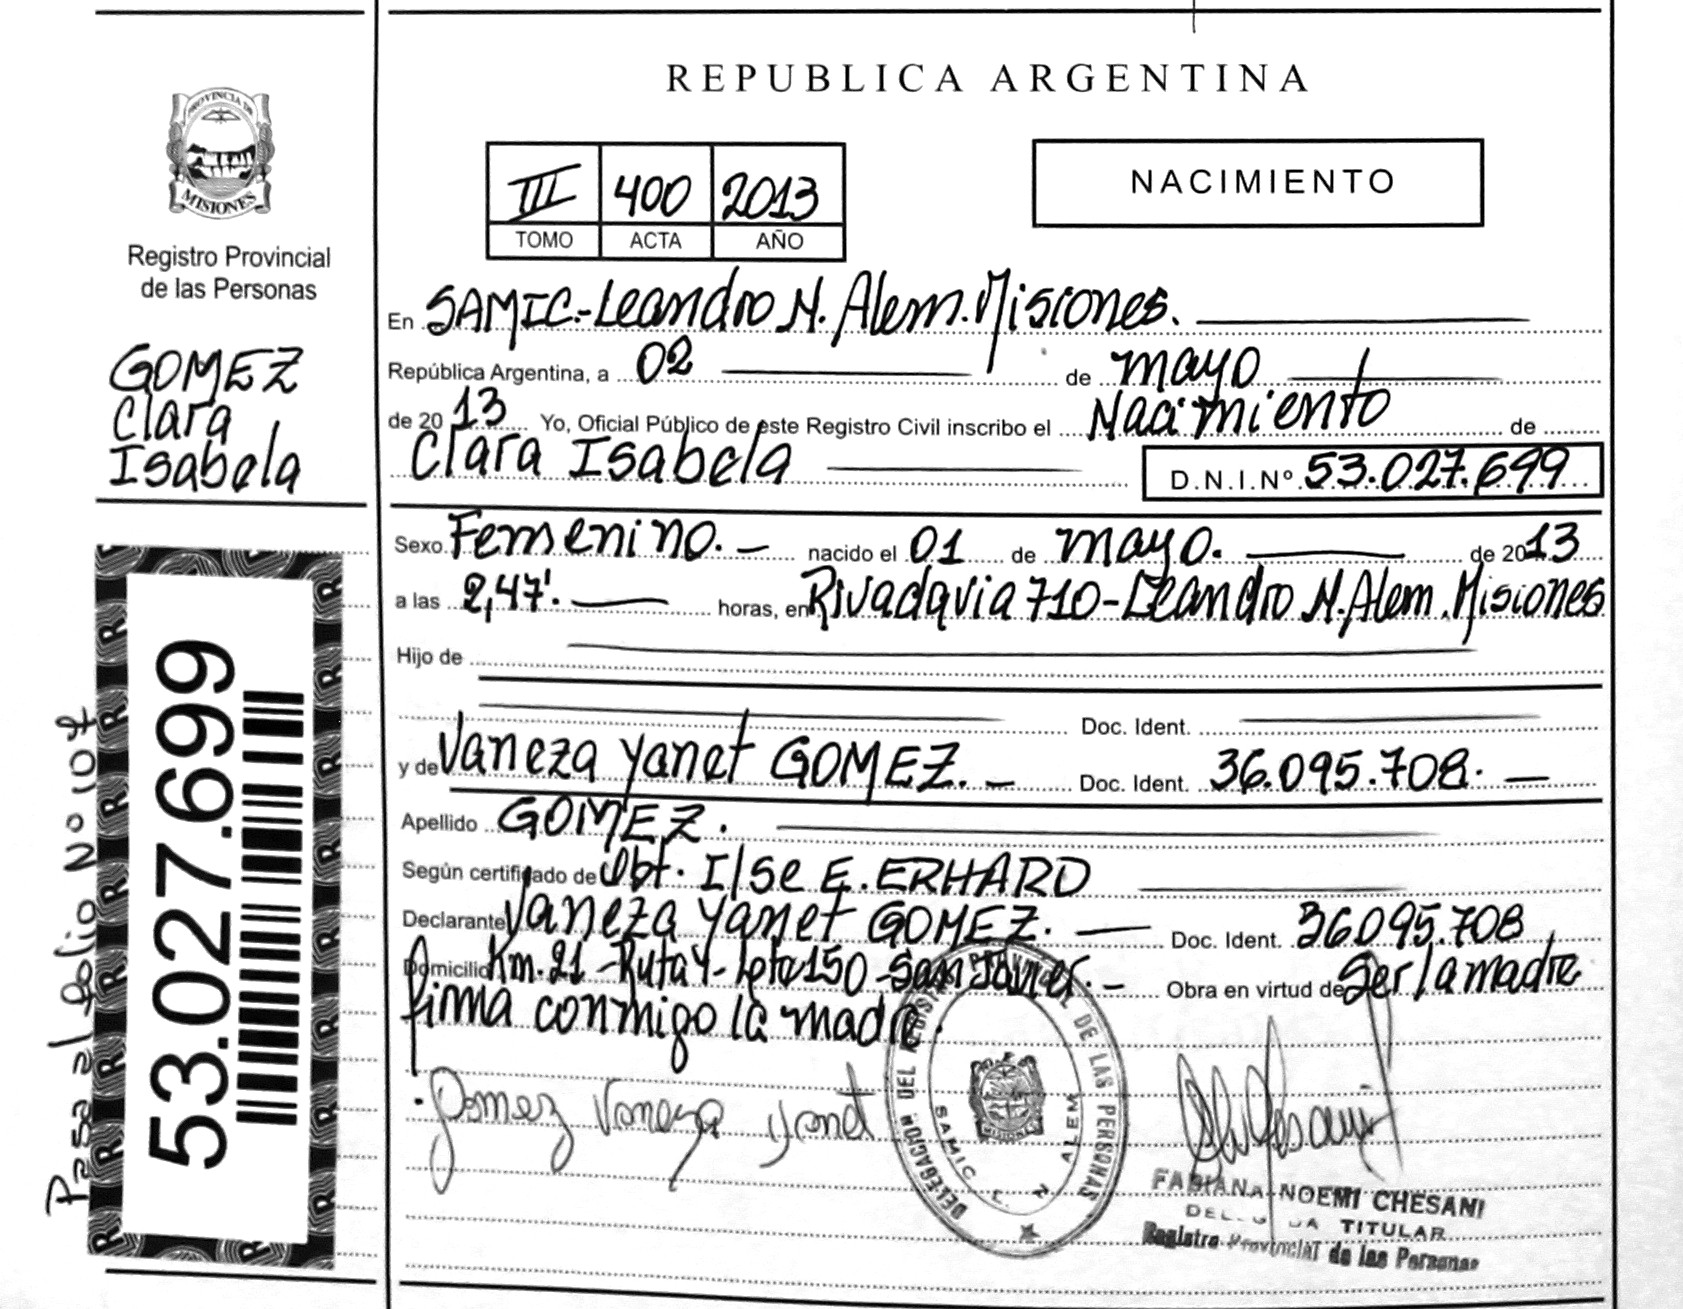 PROVINCIA DE
MISIONES
Registro Provincial
de las Personas
GOMEZ
Clara
Isabela
53.027.699
Pasa al folio No 107
REPUBLICA ARGENTINA
III 400 2013
TOMO ACTA AÑO
NACIMIENTO
En SAMIC.-Leandro N. Alem.Misiones.
República Argentina, a 02 de mayo
de 2013 Yo, Oficial Público de este Registro Civil inscribo el Nacimiento de
Clara Isabela D.N.I.Nº 53.027.699
Sexo Femenino.- nacido el 01 de mayo. de 2013
a las 2,47'. horas, en Rivadavia 710-Leandro N.Alem.Misiones
Hijo de
Doc. Ident.
y de Vaneza Yanet GOMEZ.- Doc. Ident. 36.095.708.-
Apellido GOMEZ.
Según certificado de Obt. Ilse E. ERHARD
Declarante Vaneza Yanet GOMEZ.- Doc. Ident. 36095.708
Domicilio Km.21-Ruta 4-Lote 150-San Javier.- Obra en virtud de Ser la madre
firma conmigo la madre.
Gomez Vaneza Yanet
DELEGACION DEL REGISTRO PROVINCIAL DE LAS PERSONAS
SAMIC L N ALEM
MISIONES
FABIANA NOEMI CHESANI
DELEGADA TITULAR
Registro Provincial de las Personas